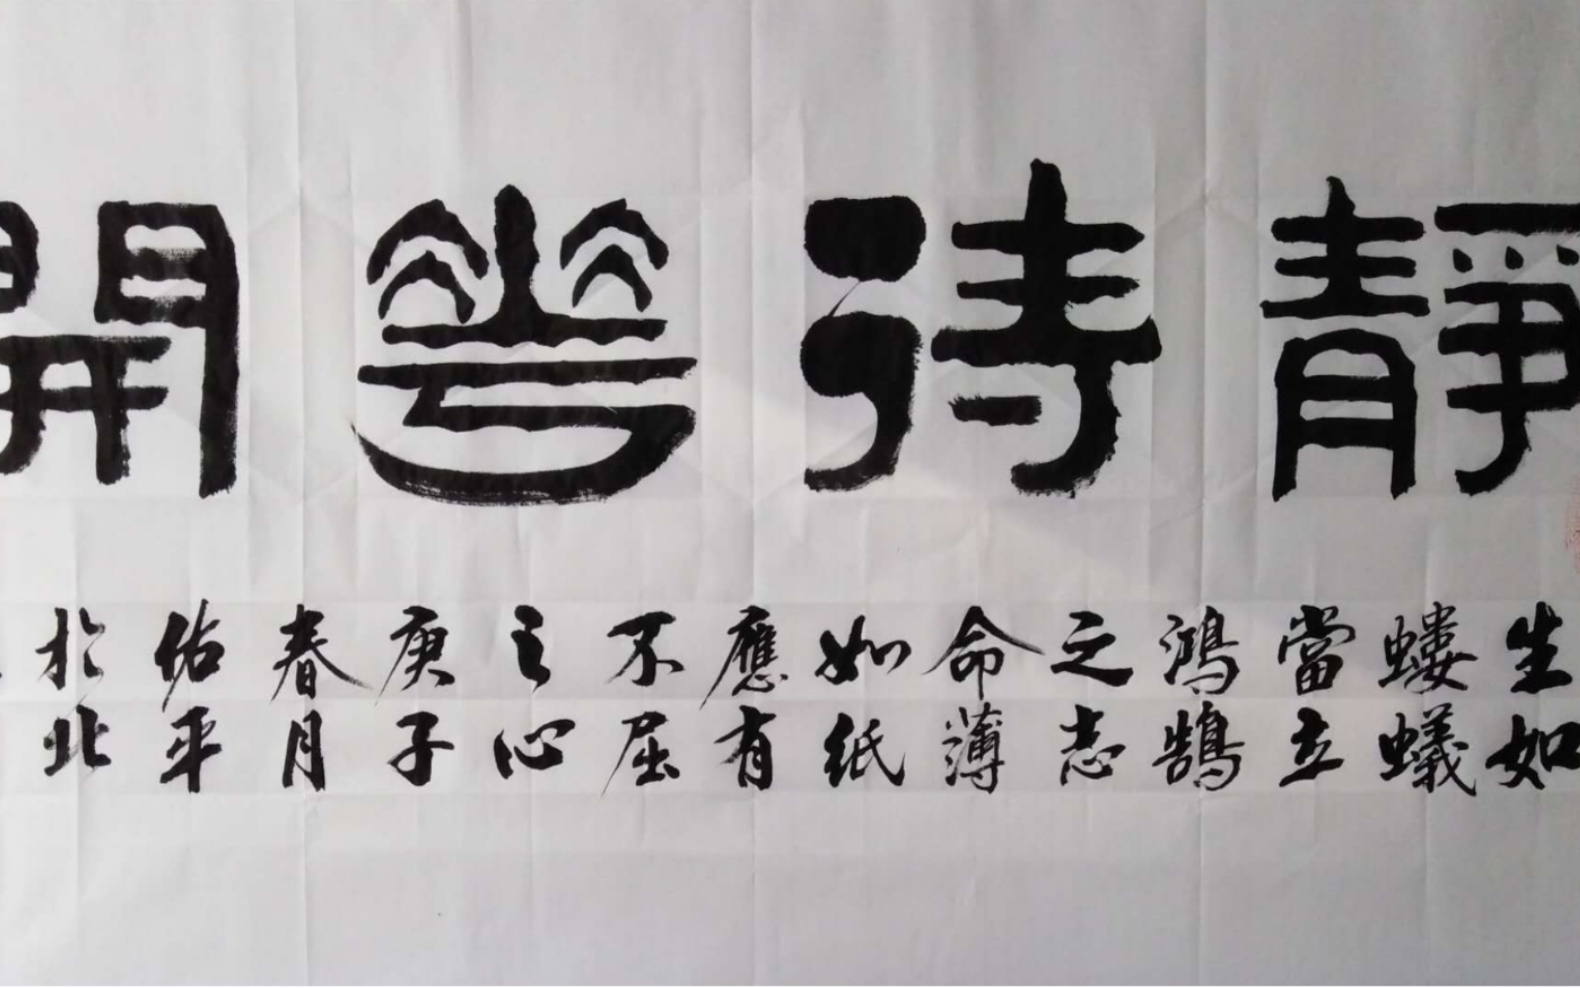 靜待花開
生如
螻蟻
當立
鴻鵠
之志
命薄
如紙
應有
不屈
之心
庚子
春月
佑平
於北